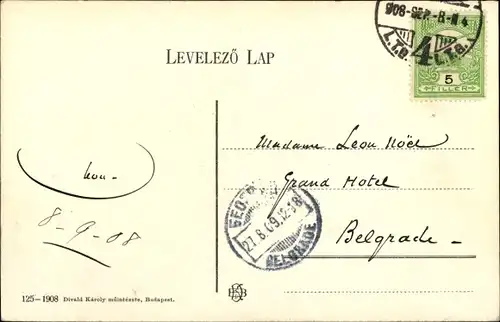 908-SEP.-8-N 4
L.T.G.
4
L.T.G.
5
FILLER
LEVELEZŐ LAP
Madame Leon Noël
Grand Hotel
Belgrade
8-9-08
27.8.09.12-18
BELGRADE
125-1908 Divald Károly műintézete, Budapest.